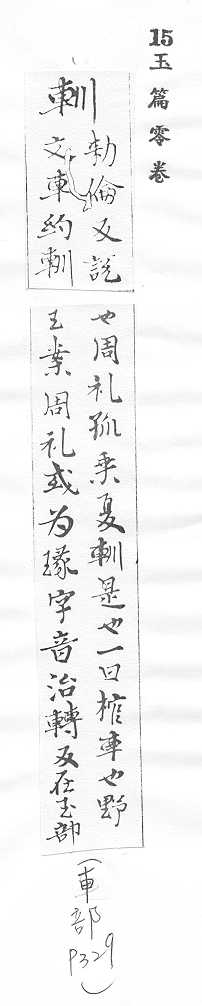 15玉篇零卷
䡅
勅倫反說
文車約䡅
也周礼孤乘夏䡅是也一曰棺車也野
王案周礼或为瑑字音治轉反在玉部
(車部P329)